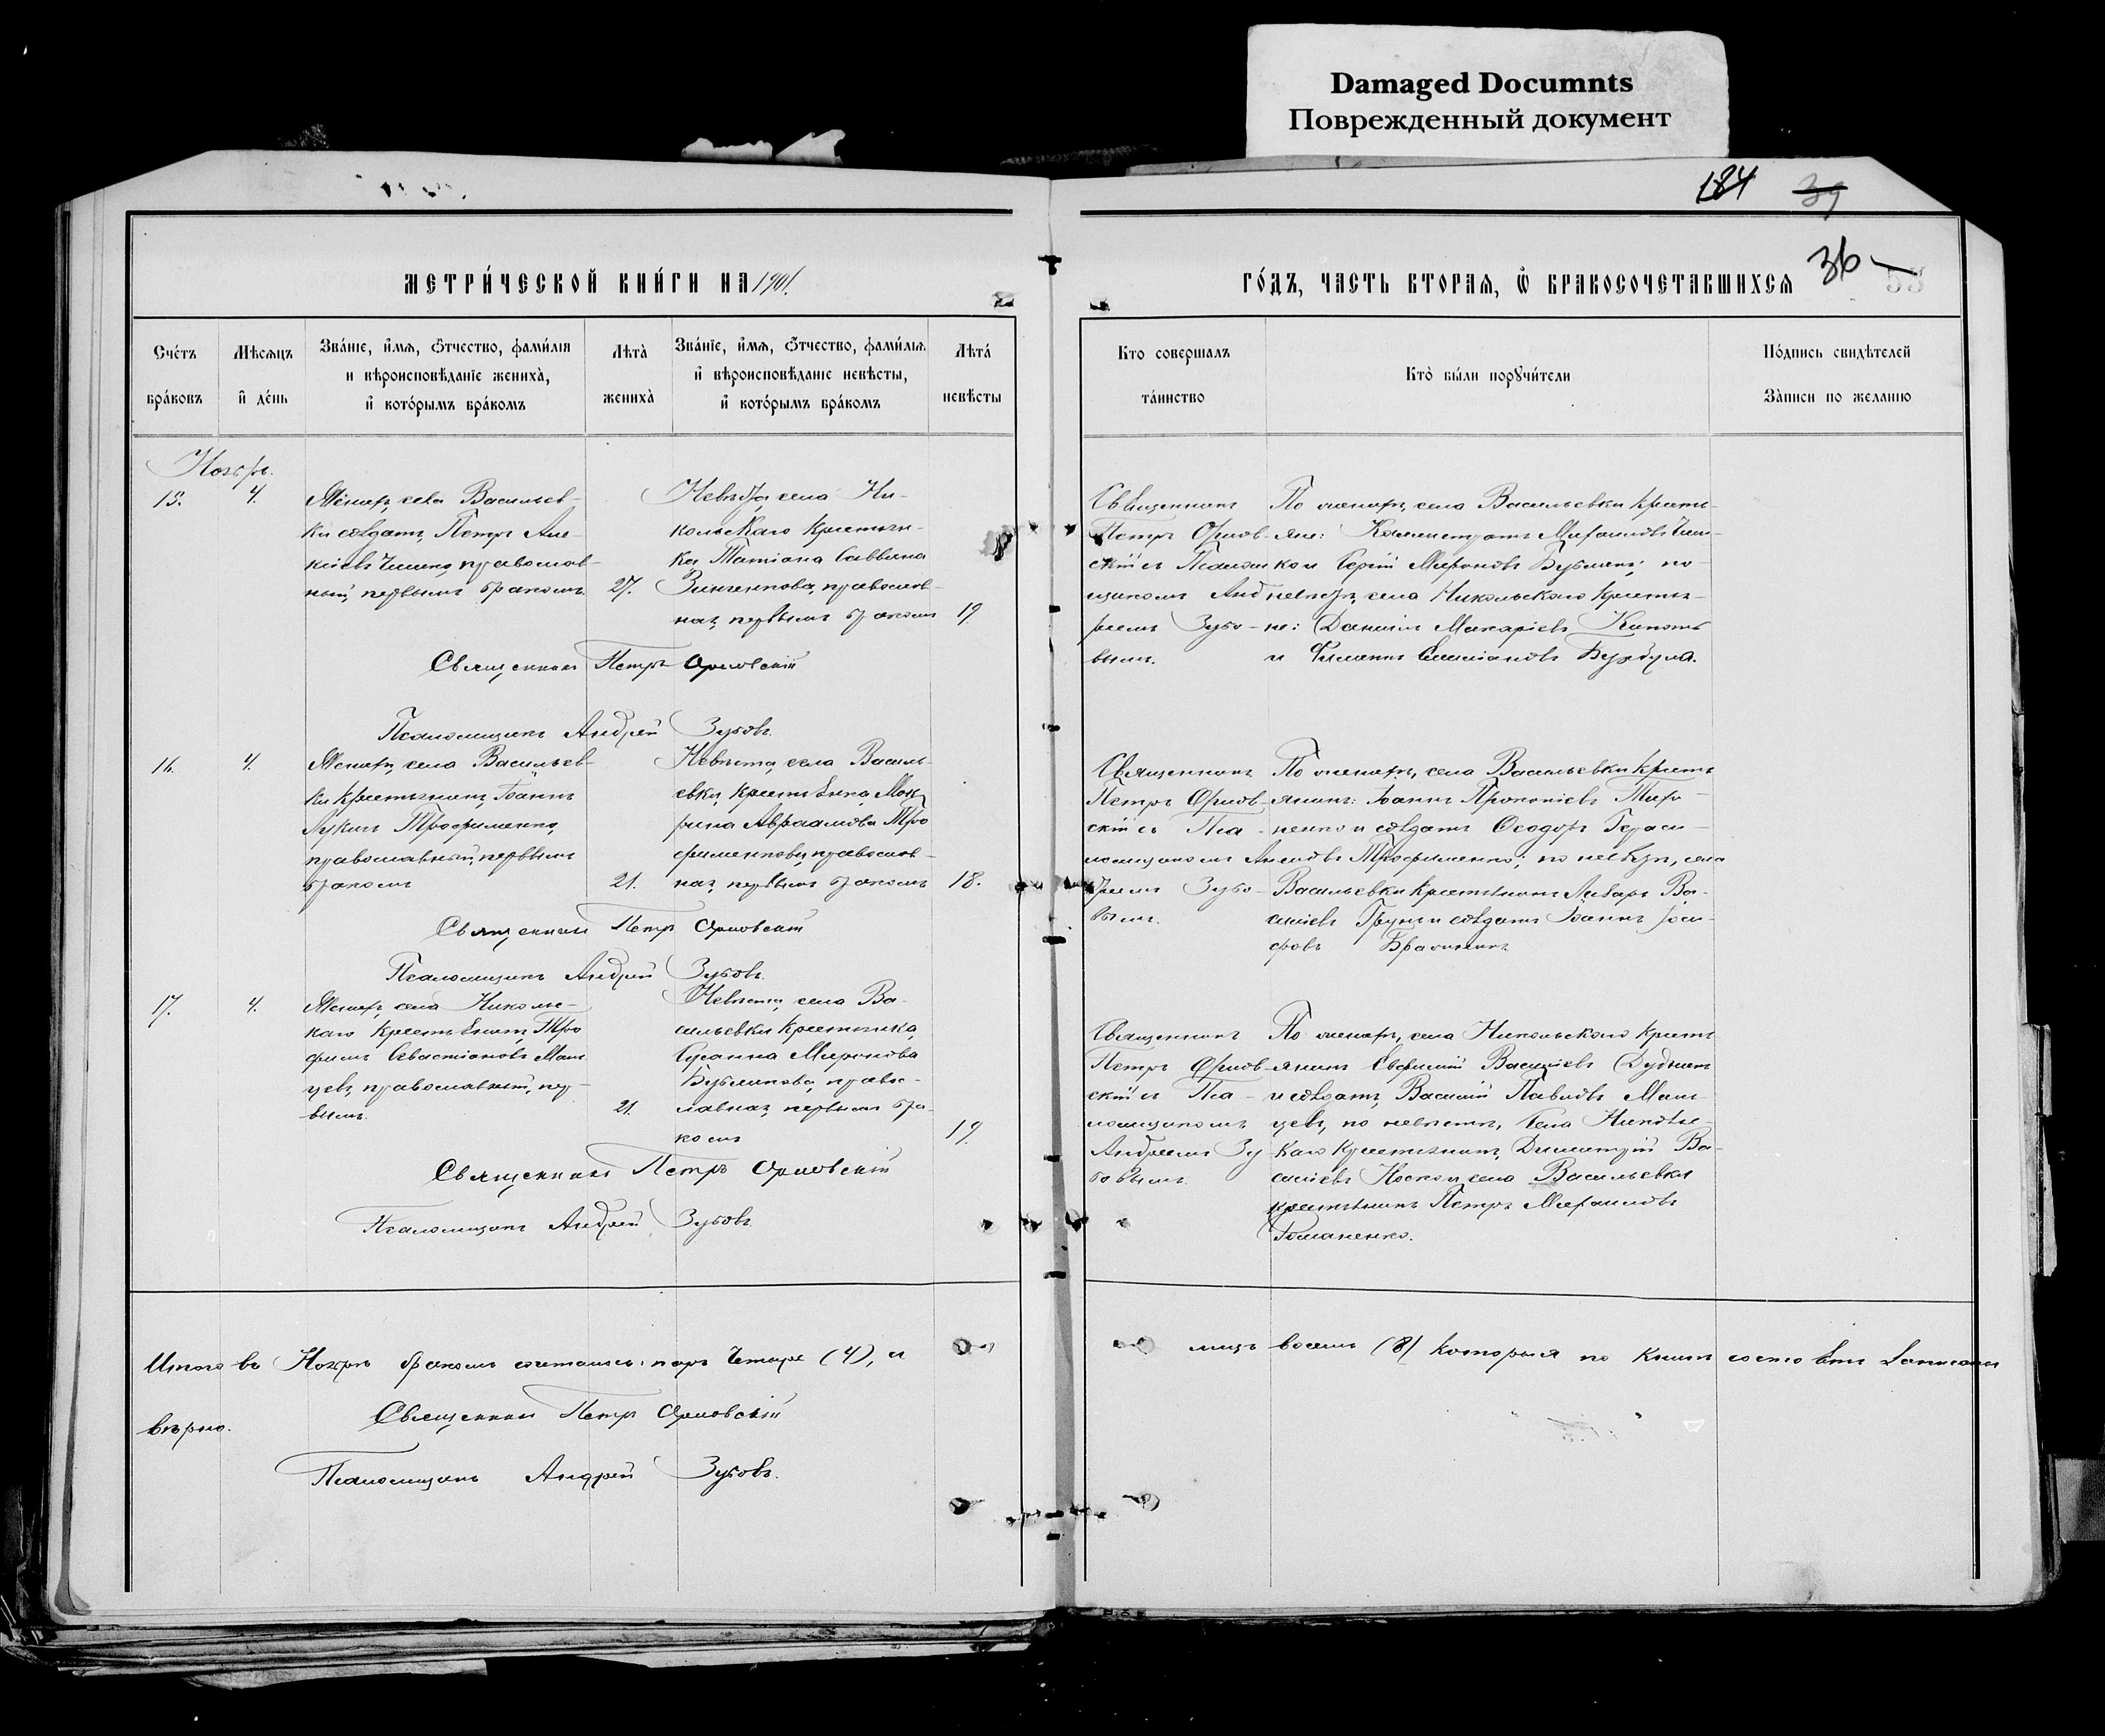 Damaged Documnts
Поврежденный документ
184 39
36
53
МЕТРИ́ЧЕСКОЙ КНИ́ГИ НА 1901
ГО́ДЪ, ЧАСТЬ ВТОРАѦ, Ѡ҆ БРАКОСОЧЕТАВШИХСѦ
Сче́тъ бра́ковъ
Мѣсѧцъ и҆ де́нь
Зва́нїе, и҆́мѧ, ѻ҆́тчество, фами́лїѧ
и вѣроисповѣ́данїе жениха̀,
и҆ кото́рымъ бра́комъ
Лѣта̀ жениха̀
Зва́нїе, и҆́мѧ, ѻ҆́тчество, фами́лїѧ
и҆ вѣроисповѣ́данїе невѣ́сты,
и҆ кото́рымъ бра́комъ
Лѣта̀ невѣ́сты
Кто совершалъ та́инство
Кто̀ бы́ли порꙋчи́тели
По́дпись свидѣ́телей
За̀писи по желанію
Ноябрь.
15. 4.
Женихъ, села Васильев-
ки солдатъ, Петръ Але-
православ-
ный, первымъ бракомъ
27.
Невѣста, села Ни-
кольскаго крестьян-
ка Татіана Саввина
Зинченкова, православ-
ная, первымъ бракомъ
19
Священникъ
Петръ Орлов-
скій съ Псалом-
щикомъ Анд-
реемъ Зубо-
вымъ.
По женихѣ, села Васильевки кресть-
яне:
Сергій Мироновъ по
невѣстѣ, села Никольскаго крестья-
не: Даніилъ Макаріевъ
и
Священникъ Петръ Орловскій
Псаломщикъ Андрей Зубовъ.
16. 4.
Женихъ, села Васильев-
ки крестьянинъ, Іоаннъ
Лукинъ Трофименко,
православный, первымъ
бракомъ
21.
Невѣста, села Василь-
евки, крестьянка, Мок-
рина Авраамова Тро
фименкова, православ-
ная, первымъ бракомъ
18.
Священникъ
Петръ Орлов-
скій съ Пса-
ломщикомъ Ан
дреемъ Зубо-
вымъ.
По женихѣ, села Васильевки кресть
янинъ: Іоаннъ Прокопіевъ
и солдатъ Ѳеодоръ Гераси-
мовъ Трофименко; по невѣстѣ, села
Васильевки крестьянинъ Ва-
силіевъ и солдатъ Іоаннъ Іоси-
фовъ
Священникъ Петръ Орловскій
Псаломщикъ Андрей Зубовъ.
17. 4.
Женихъ, села Никольс-
каго крестьянинъ, Тро
фимъ Севастіановъ Маль
цевъ, православный, пер-
вымъ.
21.
Невѣста, села Ва-
сильевки крестьянка,
Сусанна Миронова
правос-
лавная, первымъ бра-
комъ
19
Священникъ
Петръ Орлов-
скій съ Пса-
ломщикомъ
Андреемъ Зу
бовымъ.
По женихѣ, села Никольскаго кресть
янинъ Евфимій Василіевъ
и солдатъ, Василій Павловъ Маль-
цевъ, по невѣстѣ, села Никольс-
каго крестьянинъ, Димитрій Ва-
силіевъ Носко и села Васильевки
крестьянинъ Петръ Михаиловъ
Романенко.
Священникъ Петръ Орловскій
Псаломщикъ Андрей Зубовъ.
Итого въ Ноябрѣ бракомъ сочеталось: паръ четыре (4), а
лицъ восемь (8) которыя по книгѣ записаны
вѣрно.
Священникъ Петръ Орловскій
Псаломщикъ Андрей Зубовъ.